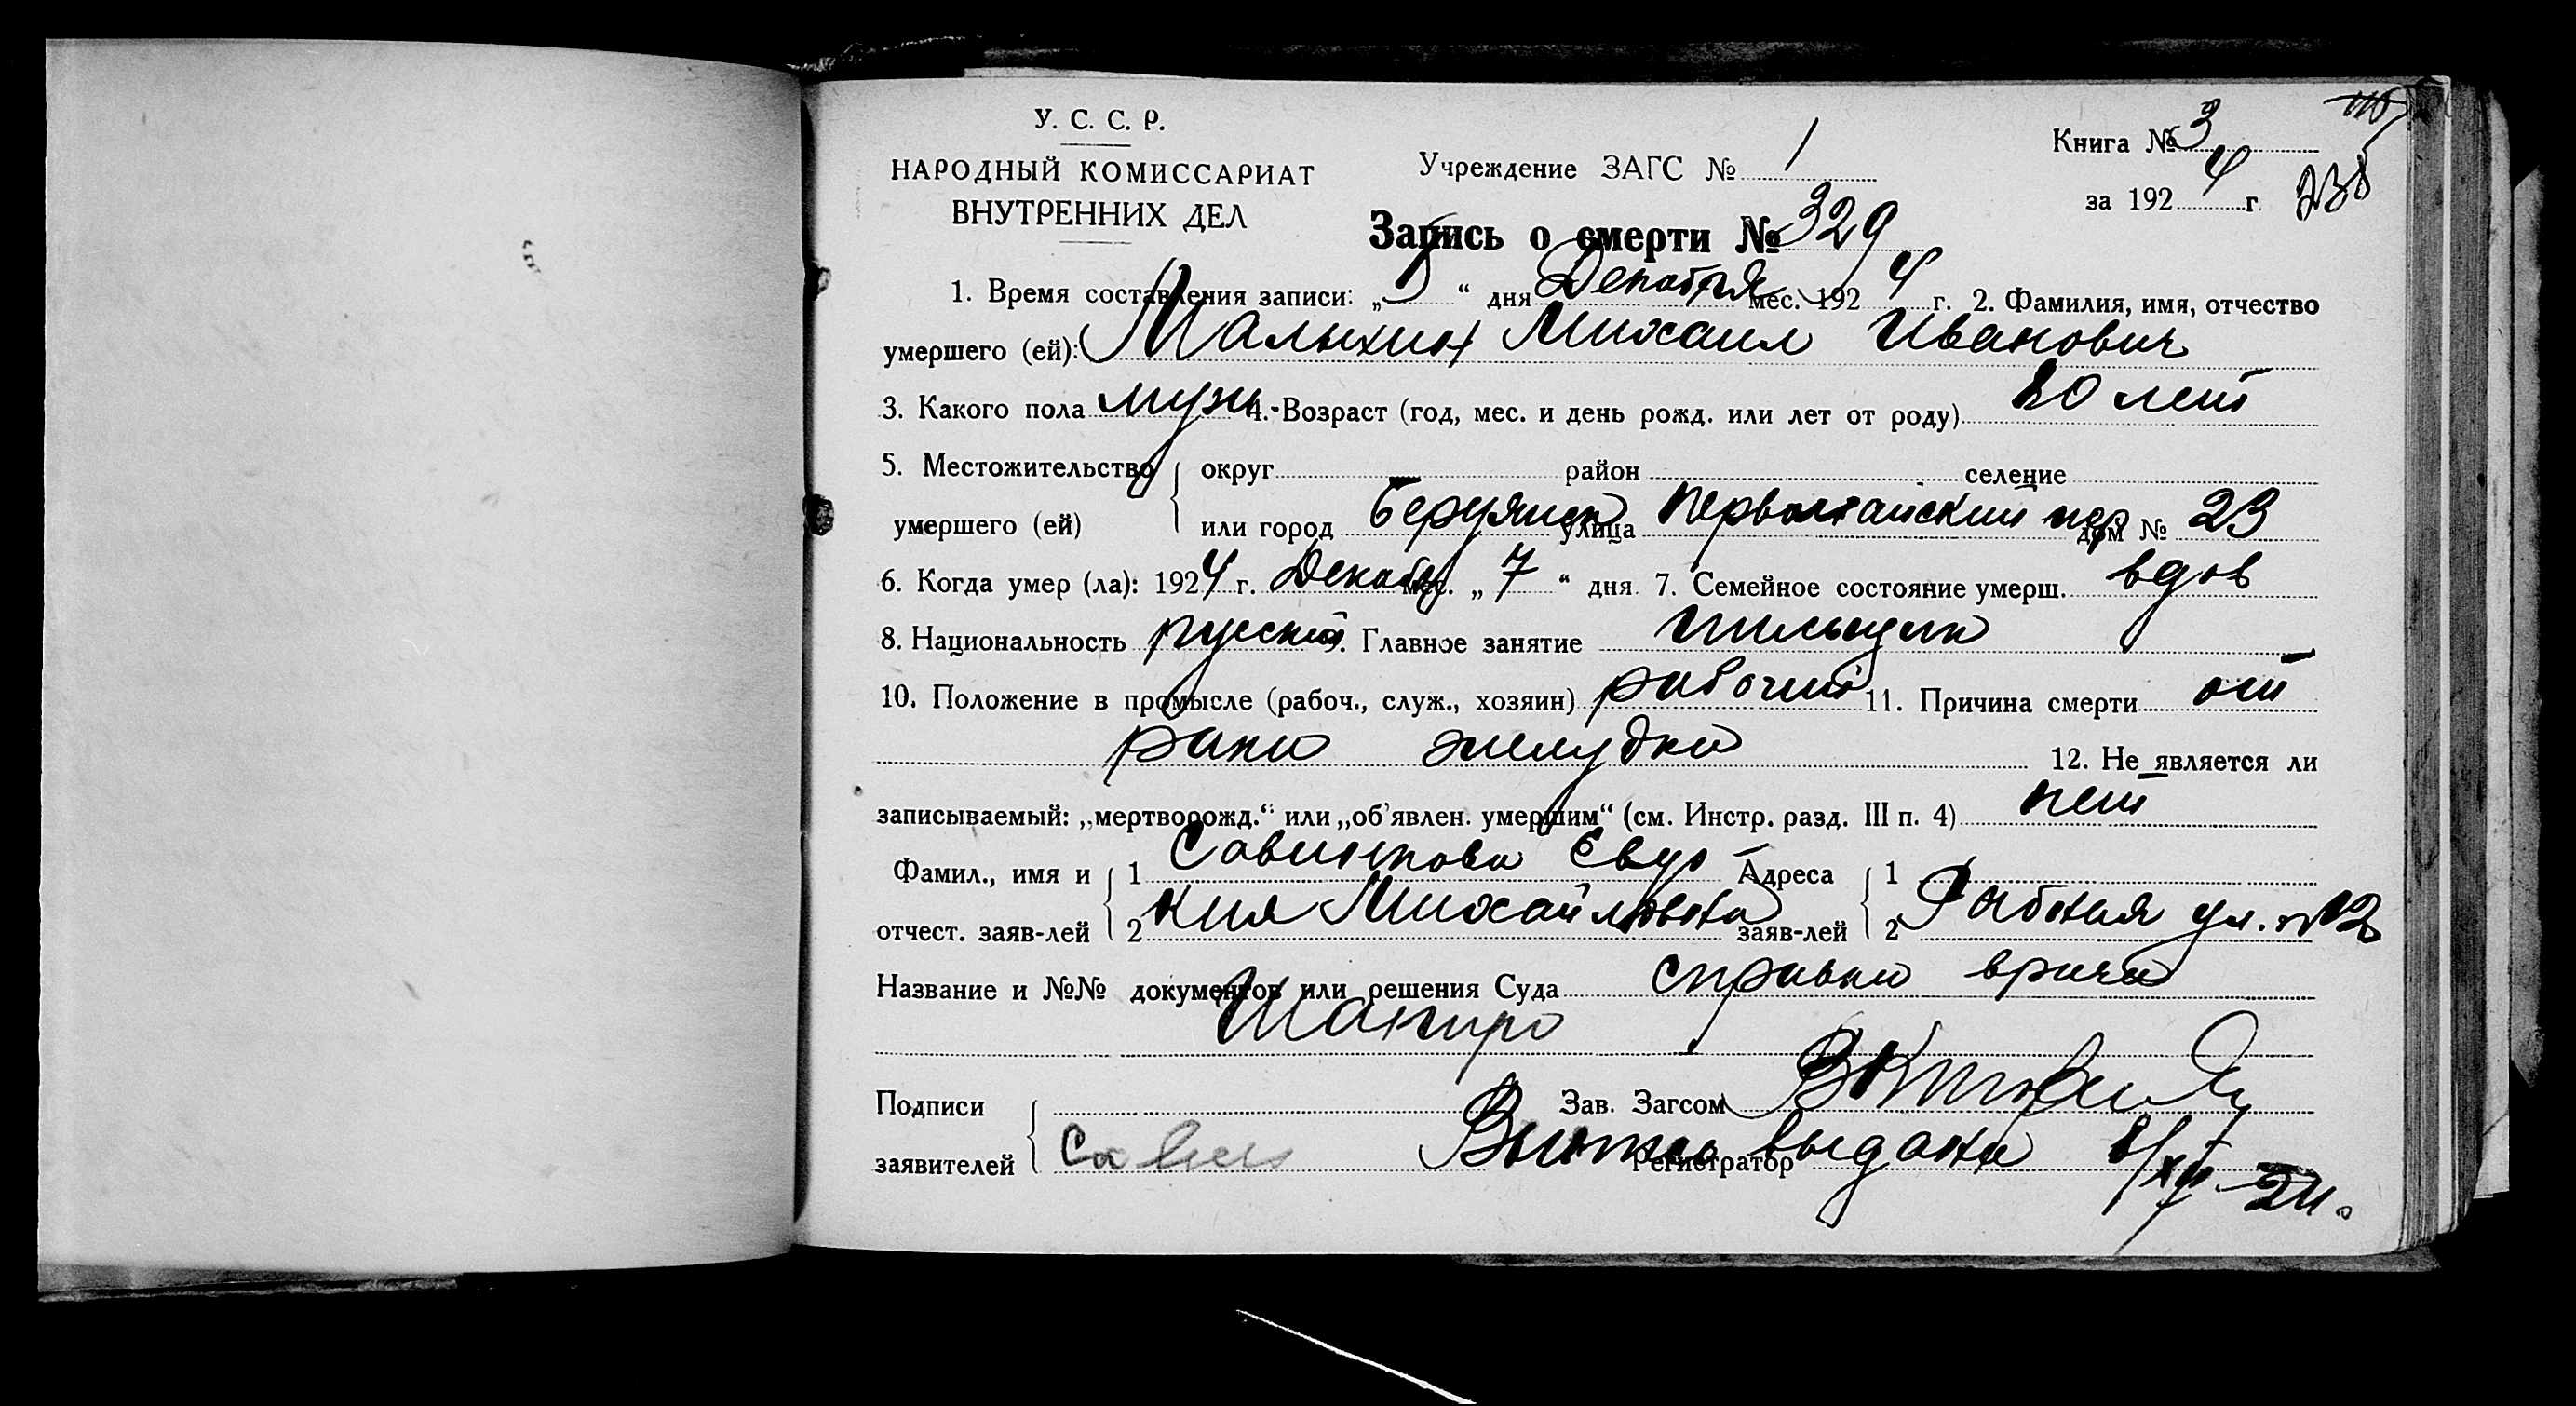 У. С. С. Р.
НАРОДНЫЙ КОМИССАРИАТ
ВНУТРЕННИХ ДЕЛ
Учреждение ЗАГС № 1
Книга № 3
за 1924 г.
Запись о смерти № 329
1. Время составления записи: „ “ дня Декабря мес. 1924 г. 2. Фамилия, имя, отчество
умершего (ей): Малыхин Михаил Иванович
3. Какого пола муж. 4. Возраст (год, мес. и день рожд. или лет от роду) 80 лет
5. Местожительство округ район селение
умершего (ей) или город Бердянск улица Первомайский пер дом № 23
6. Когда умер (ла): 1924 г. Декабр мес. „7“ дня. 7. Семейное состояние умерш. вдов
8. Национальность русский 9. Главное занятие пильщик
10. Положение в промысле (рабоч., служ., хозяин) рабочий 11. Причина смерти от
рака желудка 12. Не является ли
записываемый: „мертворожд.“ или „об'явлен. умершим“ (см. Инстр. разд. III п. 4) нет
Фамил., имя и 1 Евдо Адреса 1
отчест. заяв-лей 2 кия Михайловна заяв-лей 2 ул. №
Название и №№ документов или решения Суда справка врача
Шапиро
Подписи Зав. Загсом
заявителей Регистратор выдана 8/XII-24.